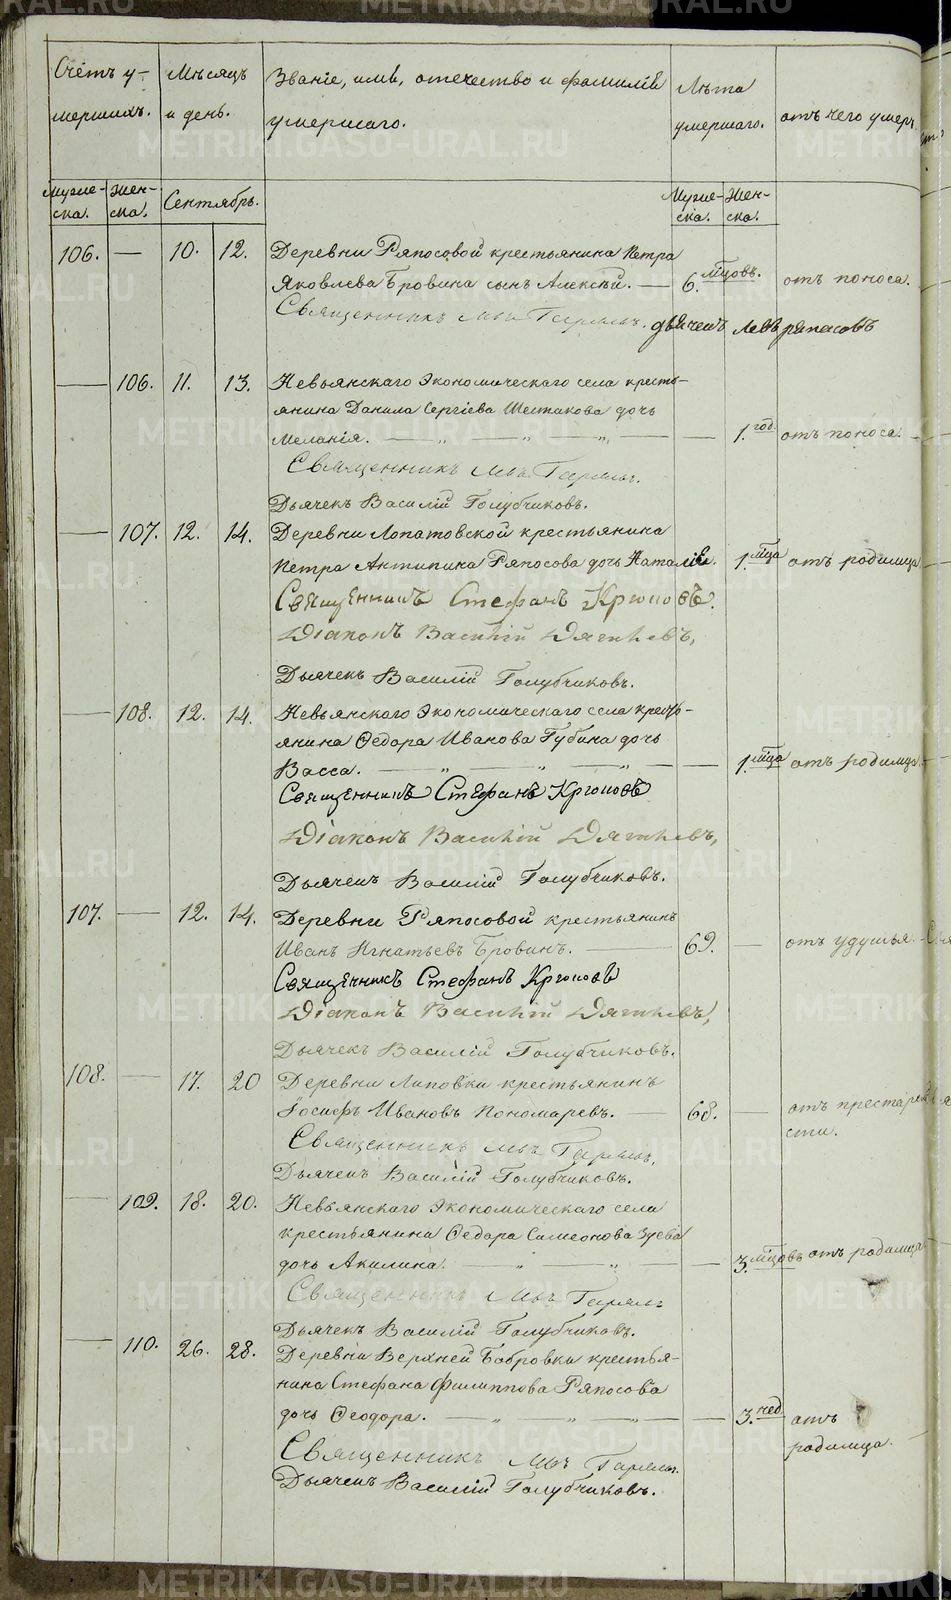 METRIKI.GASO-URAL.RU
Счетъ у-
мершихъ.
Мѣсяцъ
и день.
Званіе, имя, отечество и фамилія
умершаго.
Лѣта
умершаго.
отъ чего умеръ
Муже-
ска.
Жен-
ска.
Сентябрь.
Муже-
ска.
Жен-
ска.
106. — 10. 12. Деревни Ряпосовой крестьянина Петра
Яковлева Бровина сынъ Алексѣй. — 6. мцовъ. отъ поноса.
Священникъ
дьячекъ Левъ ряпасовъ
— 106. 11. 13. Невьянскаго Экономическаго села кресть-
янина Данила Сергіева Шестакова дочь
Меланія. — „ — „ — „ — — 1. год. отъ поноса.
Священникъ
Дьячекъ Василій Голубчиковъ.
— 107. 12. 14. Деревни Лопатовской крестьянина
Петра Антипина Ряпосова дочь Наталія. 1. мца отъ родимца
Священникъ Стефанъ Крюковъ.
Діаконъ Василій Дягилевъ,
Дьячекъ Василій Голубчиковъ.
— 108. 12. 14. Невьянскаго Экономическаго села кресть-
янина Ѳедора Иванова Губина дочь
Васса. — „ — „ — „ — — 1. мца отъ родимца
Священникъ Стефанъ Крюковъ
Діаконъ Василій Дягилевъ,
Дьячекъ Василій Голубчиковъ.
107. — 12. 14. Деревни Ряпосовой крестьянинъ
Иванъ Игнатьевъ Бровинъ. — 69. — отъ удушья.
Священникъ Стефанъ Крюковъ
Діаконъ Василій Дягилевъ,
Дьячекъ Василій Голубчиковъ.
108. — 17. 20 Деревни Липовки крестьянинъ
Іосифъ Ивановъ Пономаревъ. — 68. — отъ престарело
сти.
Священникъ
Дьячекъ Василій Голубчиковъ.
— 109. 18. 20. Невьянскаго Экономическаго села
крестьянина Ѳедора Симеонова Зуева
дочь Акилина. „ „ — 3. мцовъ отъ родимца
Священникъ
Дьячекъ Василій Голубчиковъ.
— 110. 26. 28. Деревни Верхней Бобровки крестья-
нина Стефана Филиппова Ряпосова
дочь Ѳеодора. — „ — „ — „ — — 3. нед. отъ
родимца.
Священникъ
Дьячекъ Василій Голубчиковъ.